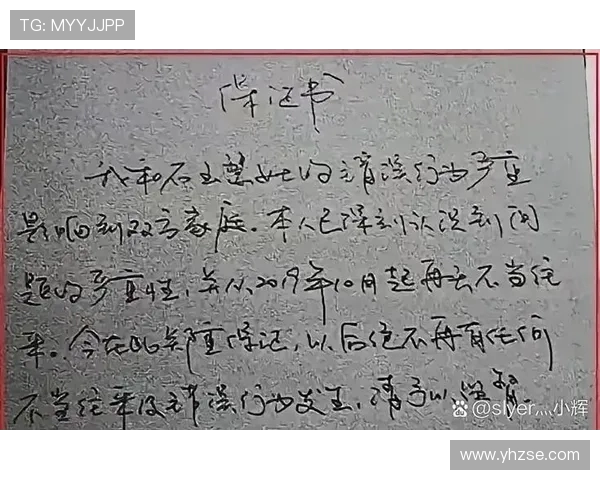 TG: MYYJJPP
保证书
我和石玉慧女士的错误行为严重
影响到双方家庭。本人已深刻认识到问
题的严重性，并从2019年10月起再无不当往
来。今在此郑重保证，以后绝不再有任何
不当往来及错误行为发生，请予以监督。
@slyer灬小辉
www.yhzse.com